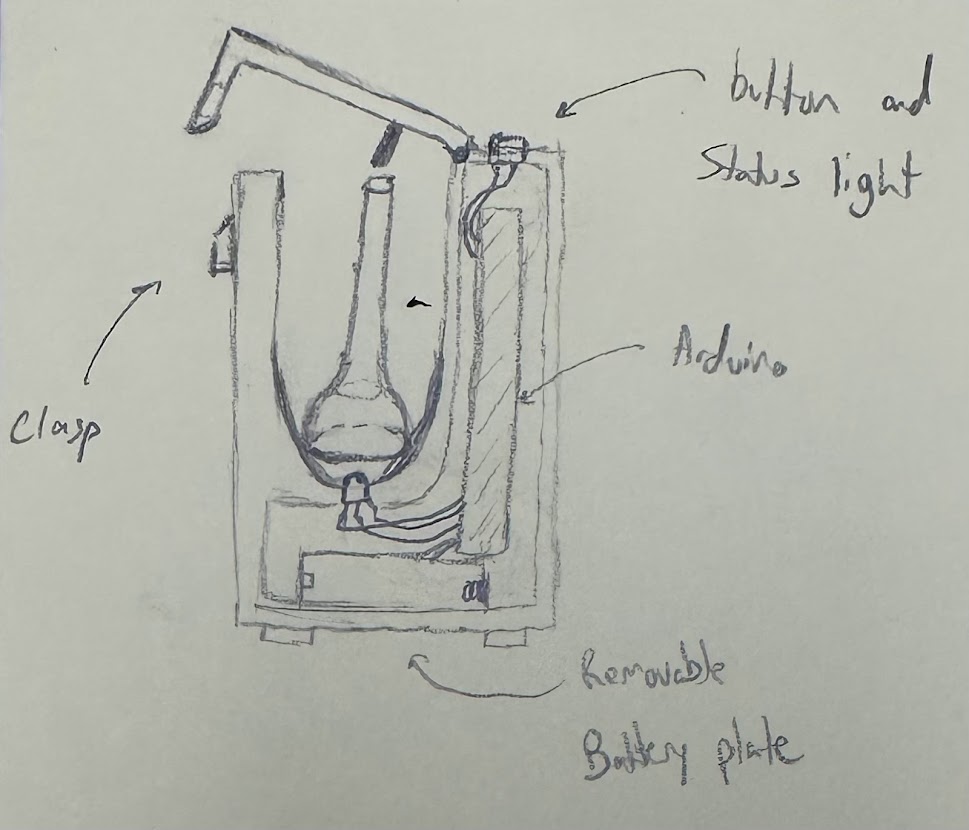 button and
Status light
Arduino
Clasp
Removable
Battery plate